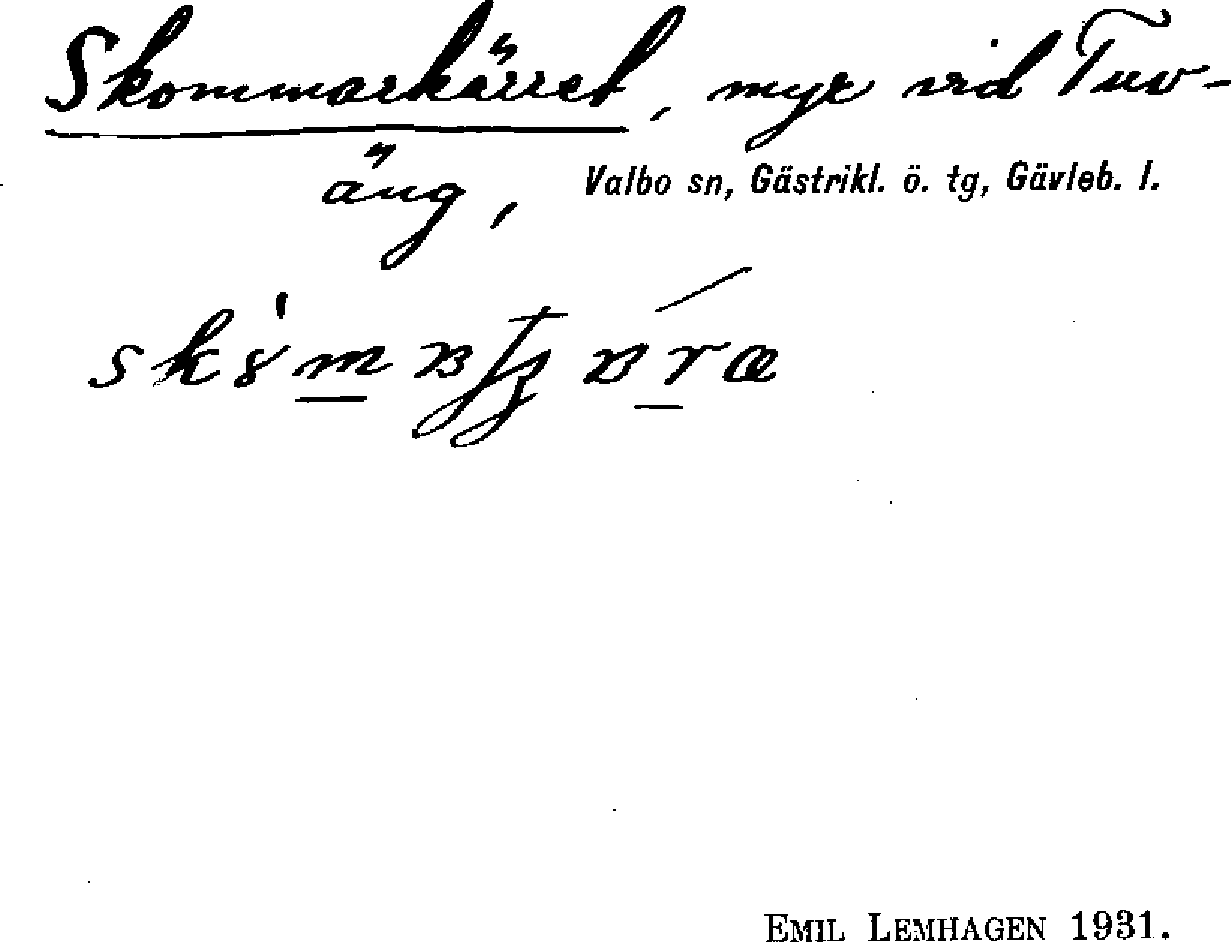 Skommarkärret, myr vid Tuv-
äng, Valbo sn, Gästrikl. ö. tg, Gävleb. l.
EMIL LEMHAGEN 1931.